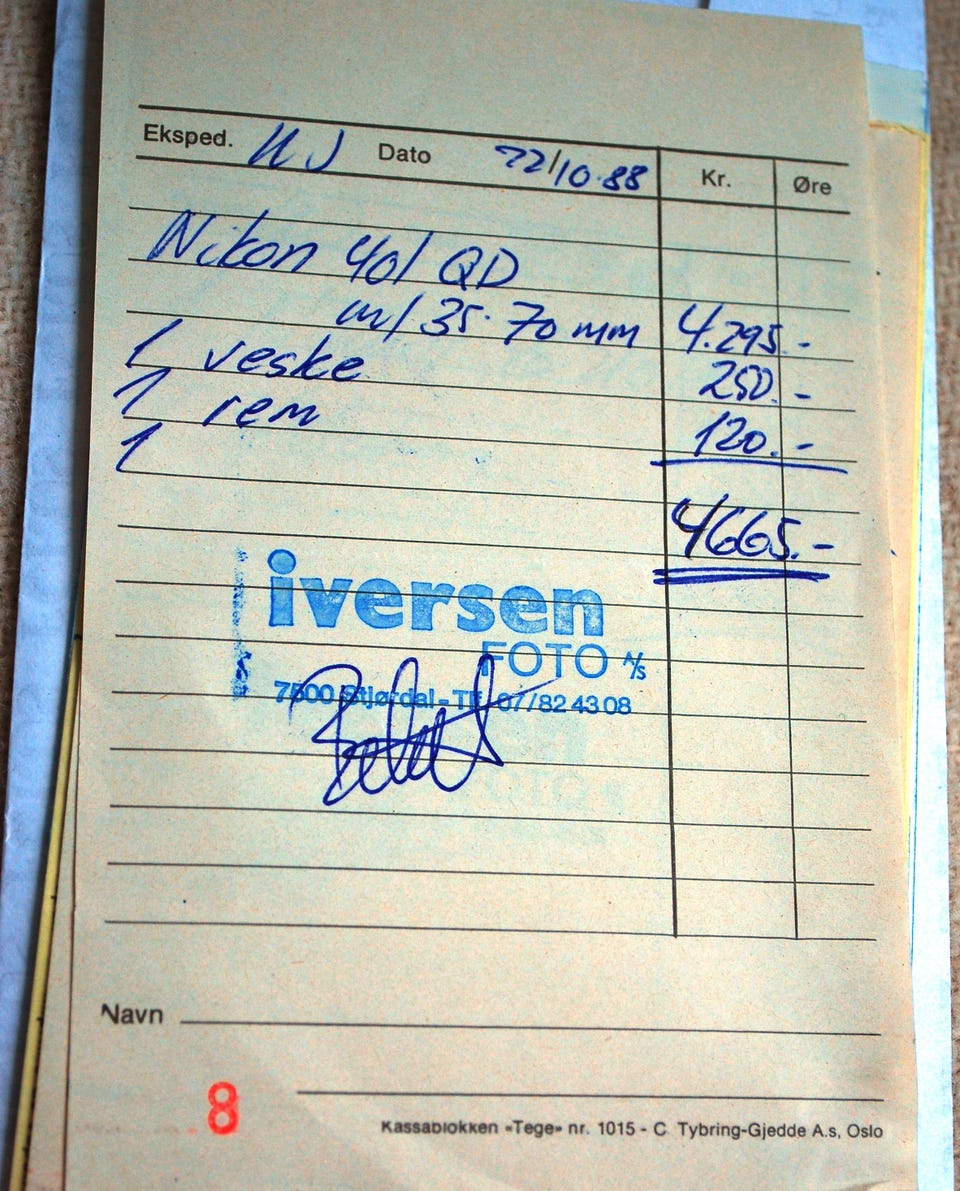 Eksped. Dato 22/10.88 Kr. Øre
Nikon 401 QD
m/ 35-70 mm 4.295.-
1 veske 250.-
1 rem 120.-
1
4665.-
iversen
FOTO A/S
7500 Stjørdal - Tlf. 07/82 43 08
Navn
8
Kassablokken «Tege» nr. 1015 - C. Tybring-Gjedde A.s, Oslo